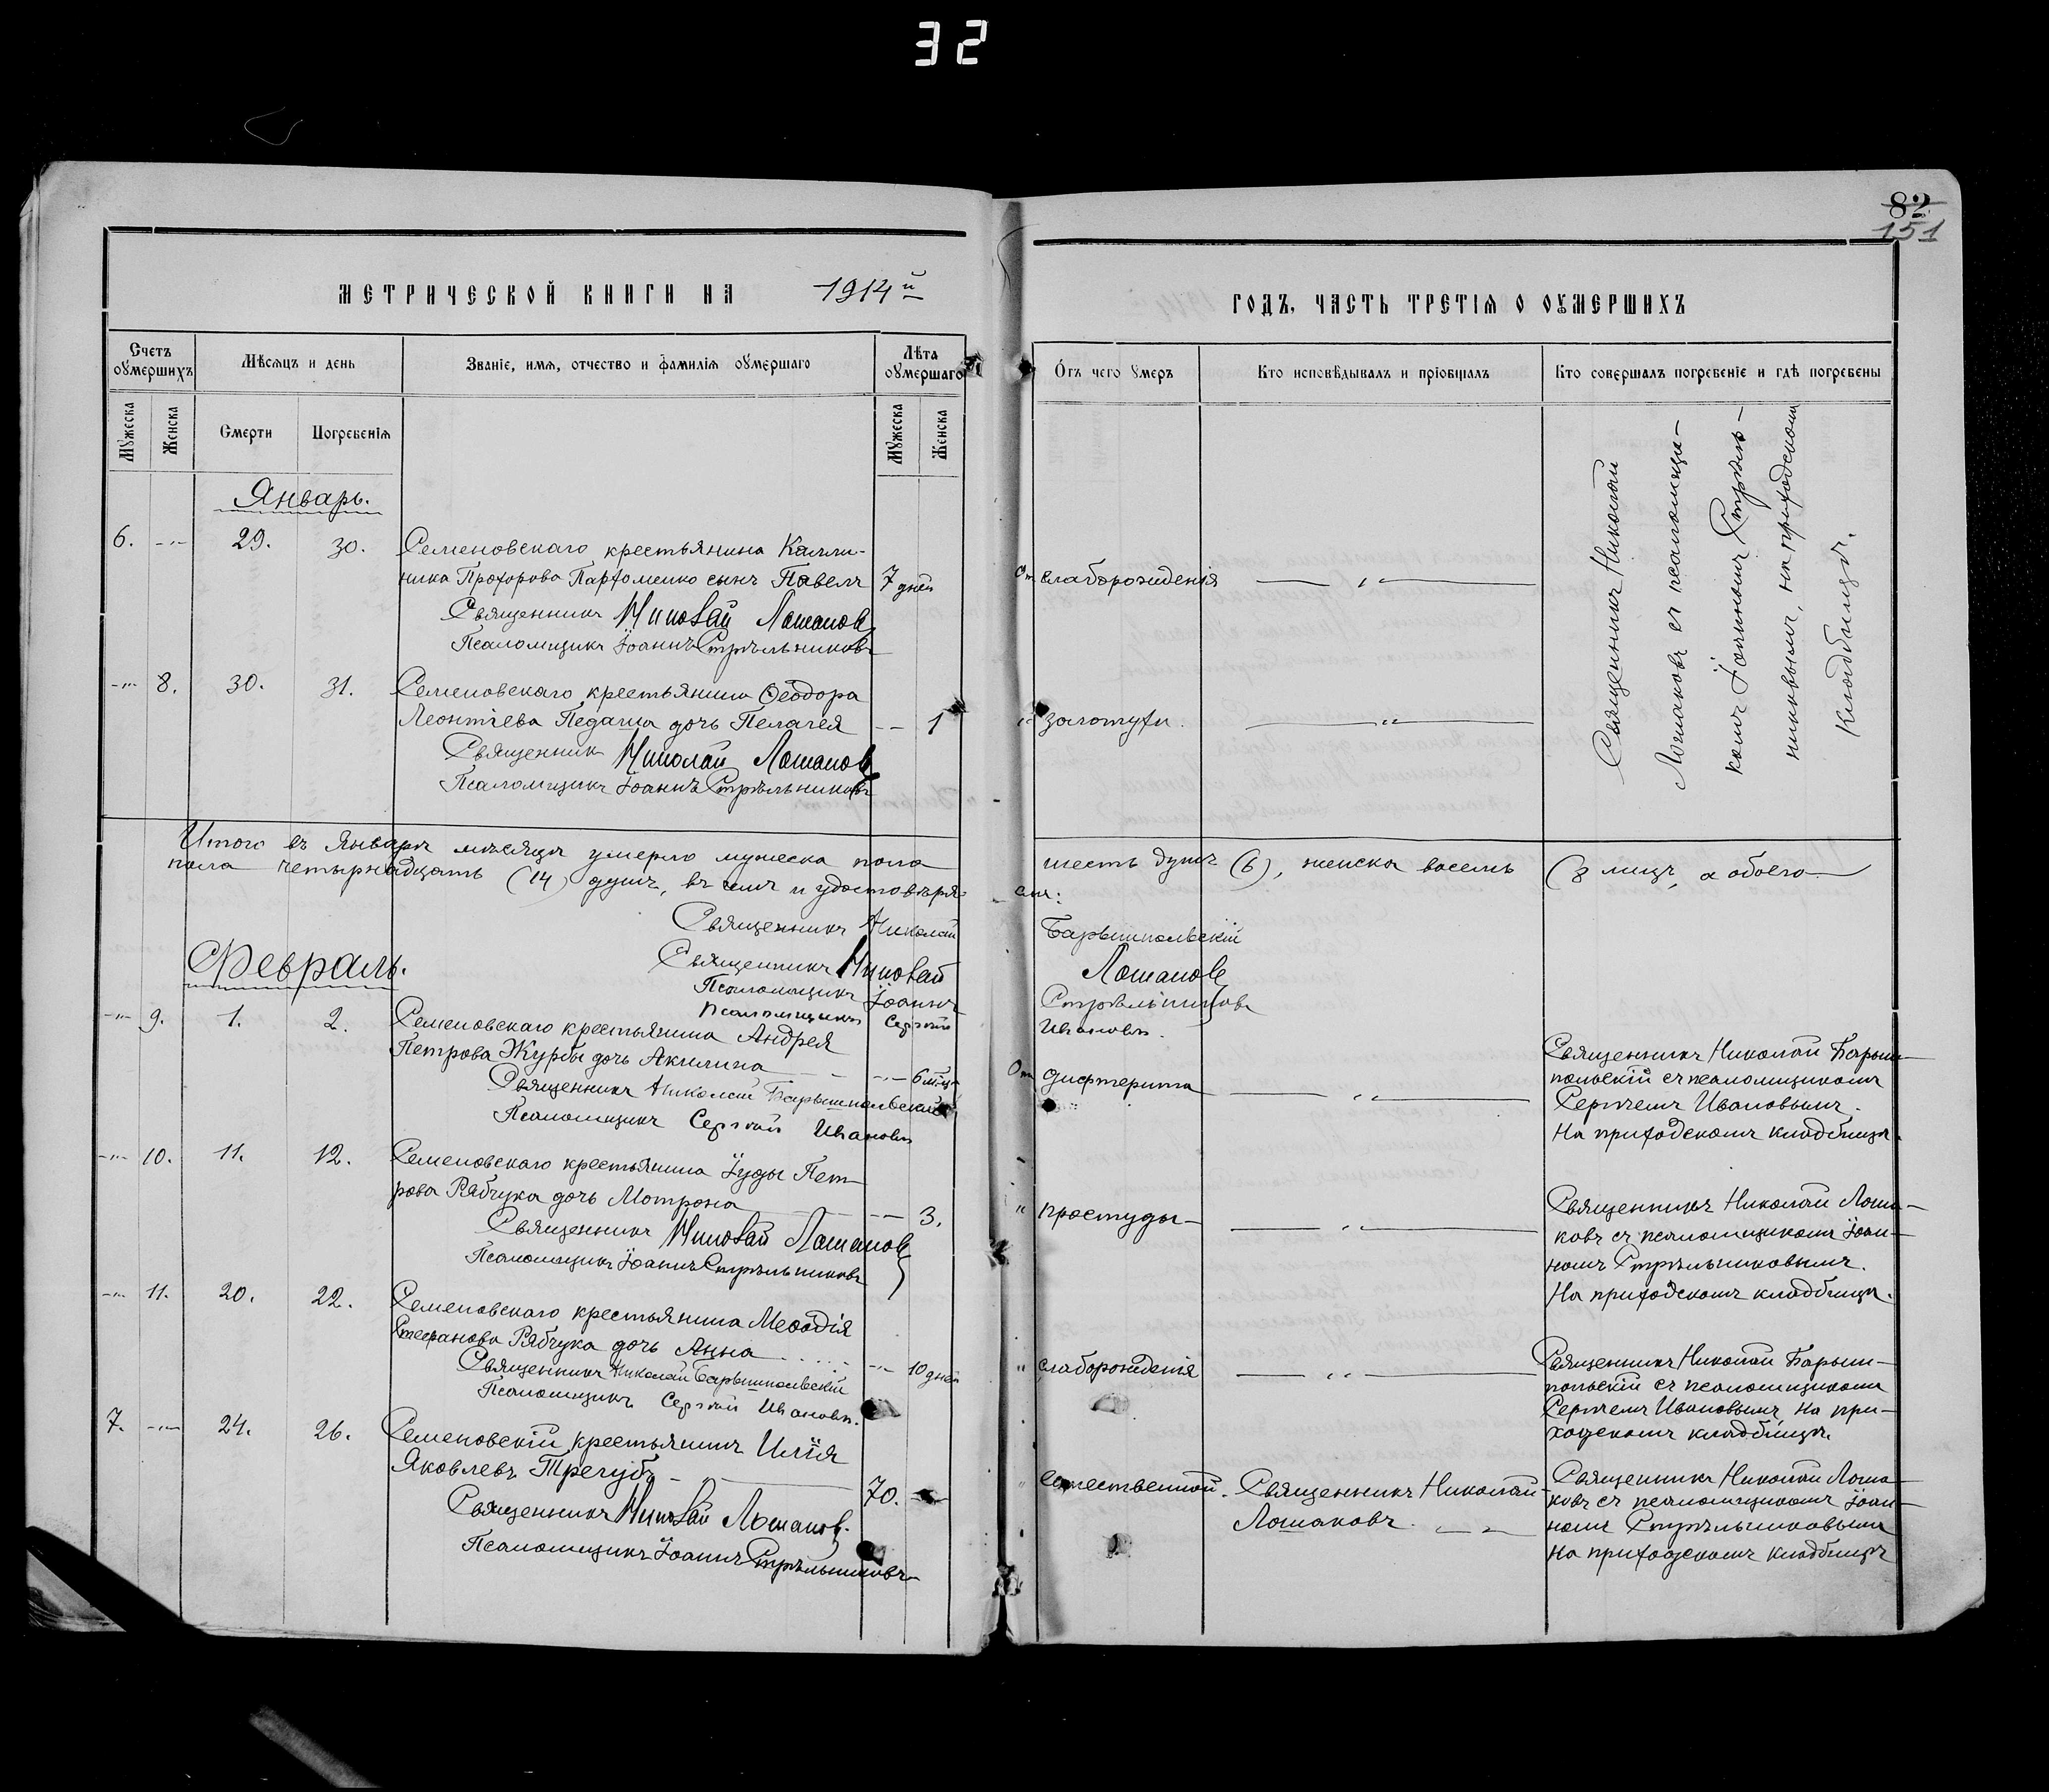 32
82
151
МЕТРИЧЕСКОЙ КНИГИ НА 1914й
ГОДЪ, ЧАСТЬ ТРЕТІѦ О ОУМЕРШИХЪ
Счетъ оумершихъ
Мѣсѧцъ и день
Званіе, имѧ, отчество и фамилія оумершаго
Лѣта оумершаго
Мужеска
Женска
Смерти
Погребеніѧ
Мужеска
Женска
Отъ чего умеръ
Кто исповѣдывалъ и пріобщалъ
Кто совершалъ погребеніе и гдѣ погребены
Январь.
6. -"- 29. 30. Семеновскаго крестьянина Калли-
ника Прохорова Парфоменко сынъ Павелъ 7 дней
Священникъ Николай Лошаковъ
Псаломщикъ Іоаннъ Стрѣльниковъ
От слаборожденія — " —
-"- 8. 30. 31. Семеновскаго крестьянина Ѳеодора
Леонтіева Педаша дочь Пелагея -- 1
Священник Николай Лошаковъ
Псаломщикъ Іоаннъ Стрѣльниковъ
" золотухи. — " —
Священникъ Николай
Лошаковъ съ псаломщи-
комъ Іоанномъ Стрѣль-
никовымъ, на приходскомъ
кладбищѣ.
Итого въ Январѣ мѣсяцѣ умерло мужеска пола шесть душъ (6), женска восемь (8 лицъ, а обоего
пола четырнадцать (14) душъ, въ чемъ и удостовѣря-
ем:
Священникъ Николай Барышпольскій
Священникъ Николай Лошаковъ
Псаломщикъ Іоаннъ Стрѣльниковъ
Псаломщикъ Сергѣй Ивановъ.
Февраль.
-"- 9. 1. 2. Семеновскаго крестьянина Андрея
Петрова Журбы дочь Акилина -"- 6 мѣц.
Священникъ Николай Барышпольскій
Псаломщикъ Сергѣй Ивановъ
От дифтерита — " —
Священникъ Николай Барыш-
польскій съ псаломщикомъ
Сергѣемъ Ивановымъ.
На приходскомъ кладбищѣ.
-"- 10. 11. 12. Семеновскаго крестьянина Іуды Пет-
рова Рябчука дочь Мотрона -- 3.
Священникъ Николай Лошаковъ
Псаломщикъ Іоаннъ Стрѣльниковъ
" простуды — " —
Священникъ Николай Лоша-
ковъ съ псаломщикомъ Іоан-
номъ Стрѣльниковымъ.
На приходскомъ кладбищѣ.
-"- 11. 20. 22. Семеновскаго крестьянина Меѳодія
Стефанова Рябчука дочь Анна -"- 10 дней
Священникъ Николай Барышпольскій
Псаломщикъ Сергѣй Ивановъ.
" слаборожденія — " —
Священникъ Николай Барыш-
польскій съ псаломщикомъ
Сергѣемъ Ивановымъ на при-
ходскомъ кладбищѣ.
7. -"- 24. 26. Семеновскій крестьянинъ Илія
Яковлевъ Трегубъ 70. --
Священникъ Николай Лошаковъ.
Псаломщикъ Іоаннъ Стрѣльниковъ
" естественной. Священникъ Николай
Лошаковъ. — " —
Священникъ Николай Лоша-
ковъ съ псаломщикомъ Іоан-
номъ Стрѣльниковымъ
на приходскомъ кладбищѣ